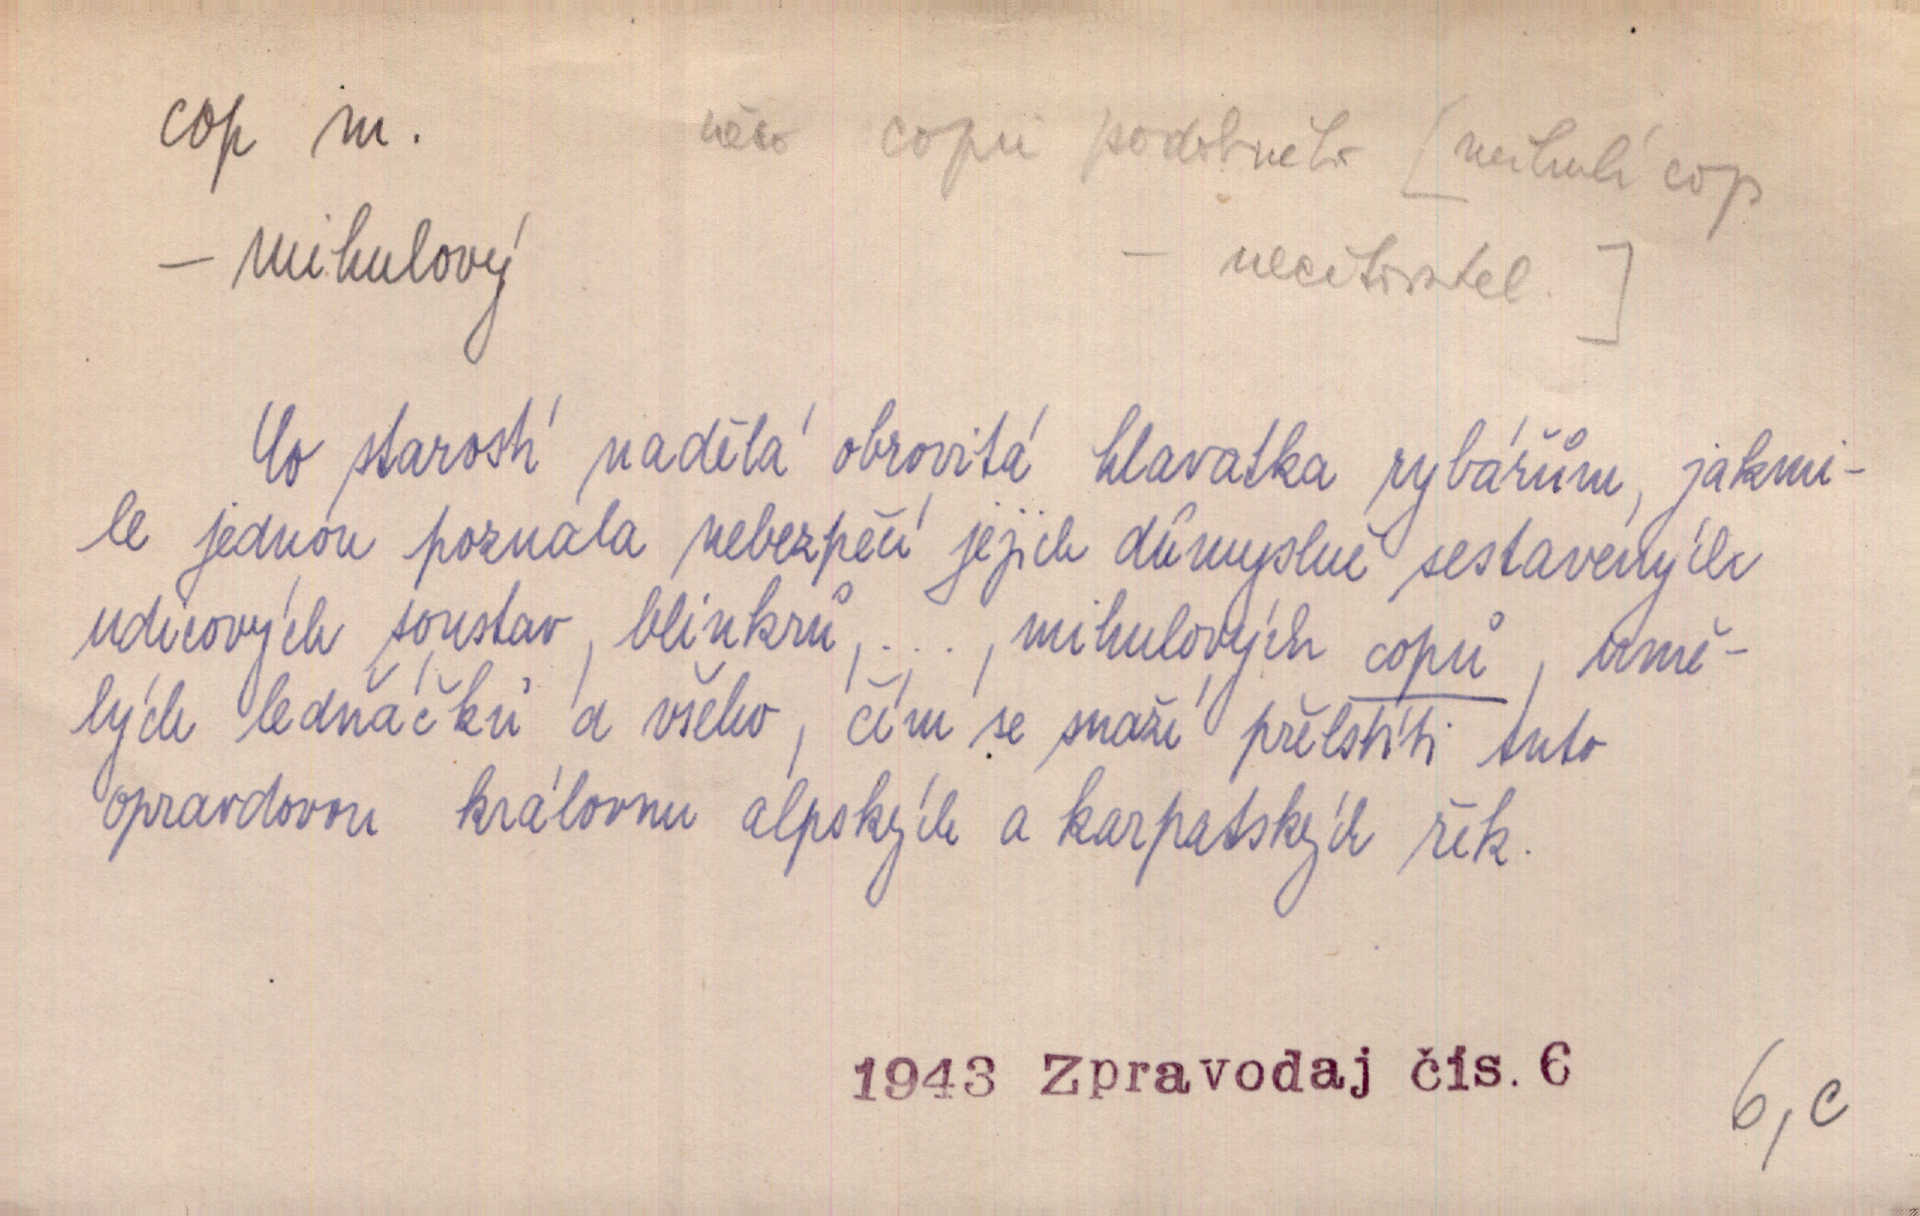 cop m. něco copu podobného [mihulí cop
– mihulový – necitovatel.]
Co starostí nadělá obrovitá hlavatka rybářům, jakmi-
le jednou poznala nebezpečí jejich důmyslně sestavených
udicových soustav, blinkrů, ..., mihulových copů, umě-
lých ledňáčků a všeho, čím se snaží přelstíti tuto
opravdovou královnu alpských a karpatských řek.
1943 Zpravodaj čís. 6
6, c